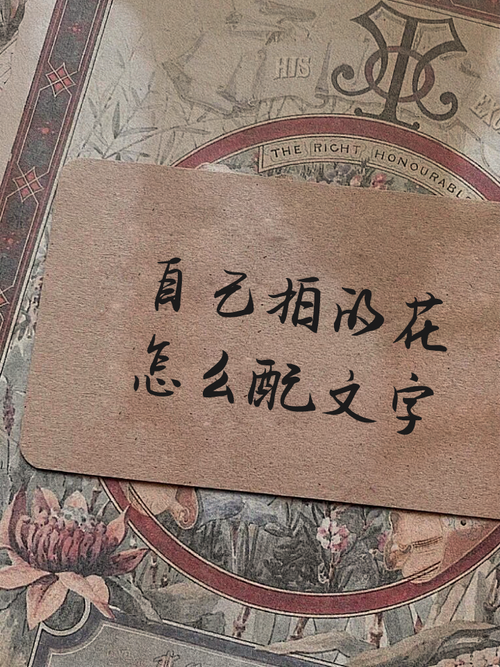 HIS
THE RIGHT HONOURABLE
自己拍的花
怎么配文字